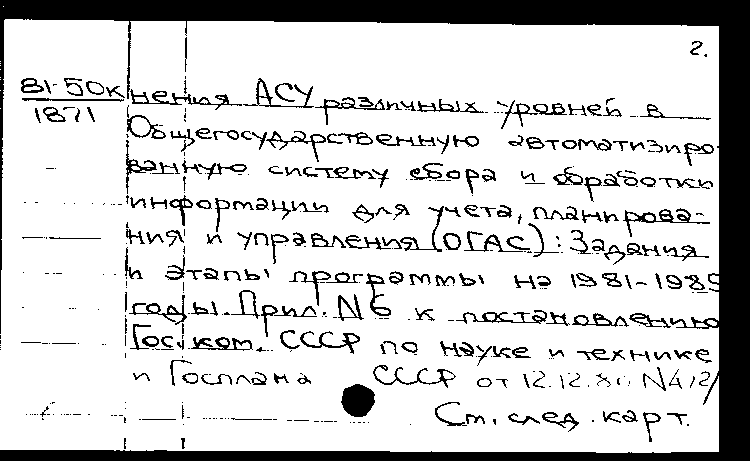 2.
81-50к нения АСУ различных уровней в
1871 Общегосударственную автоматизиро-
ванную систему сбора и обработки
информации для учета, планирова-
ния и управления (ОГАС): Задания
и этапы программы на 1981-1985
годы. Прил. N 6 к постановлению
Гос. ком. СССР по науке и технике
и Госплана СССР от 12.12.80 N
См. след. карт.